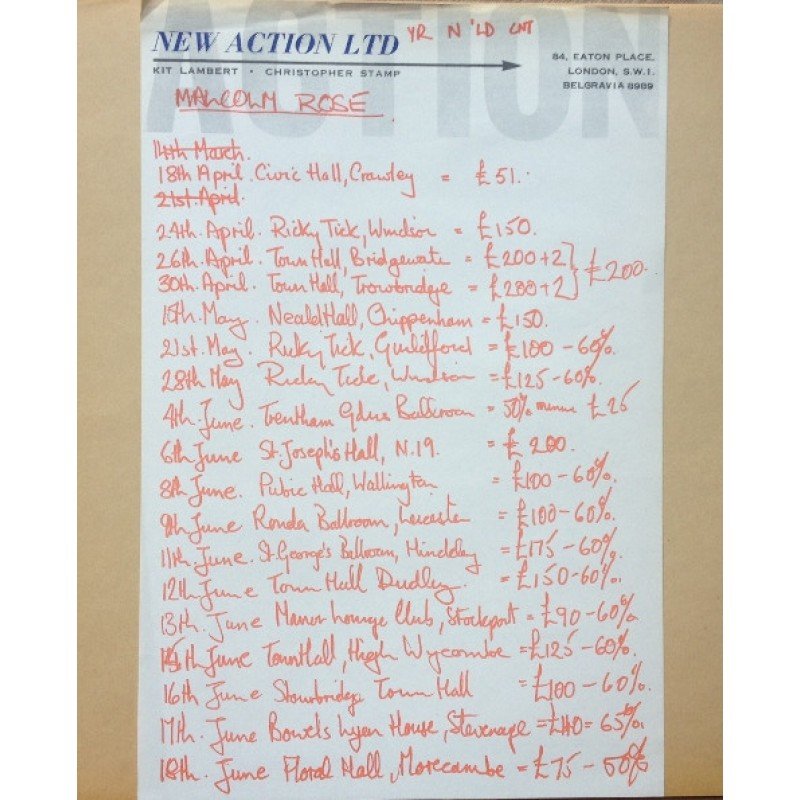 ACTION
NEW ACTION LTD YR N 'LD CNT
KIT LAMBERT • CHRISTOPHER STAMP
84, EATON PLACE,
LONDON, S.W.1.
BELGRAVIA 8989
MALCOLM ROSE.
14th March.
18th April. Civic Hall, Crawley = £51.
21st April.
24th. April. Ricky Tick, Windsor = £150.
26th. April. Town Hall, Bridgewate = £200+2] } £200.
30th. April. Town Hall, Trowbridge = £200+2]
15th. May. Neald Hall, Chippenham = £150.
21st. May. Ricky Tick, Guildford = £100 - 60%.
28th May Ricky Tick, Windsor = £125 - 60%.
4th June. Trentham Gdns Ballroom = 50% minus £25
6th June St. Joseph's Hall, N.19. = £200.
8th June. Pubic Hall, Wallington = £100 - 60%.
9th June Ronda Ballroom, Leicester = £100 - 60%.
11th June. St. George's Ballroom, Hinckley = £175 - 60%.
12th June Town Hall Dudley. = £150-60%.
13th. June Manor Lounge Club, Stockport = £90 - 60%
15th June Town Hall, High Wycombe = £125 - 60%.
16th June Stourbridge Town Hall = £100 - 60%.
17th. June Bowes Lyon House, Stevenage = £110 = 65%.
18th. June Floral Hall, Morecambe = £75 - 50%